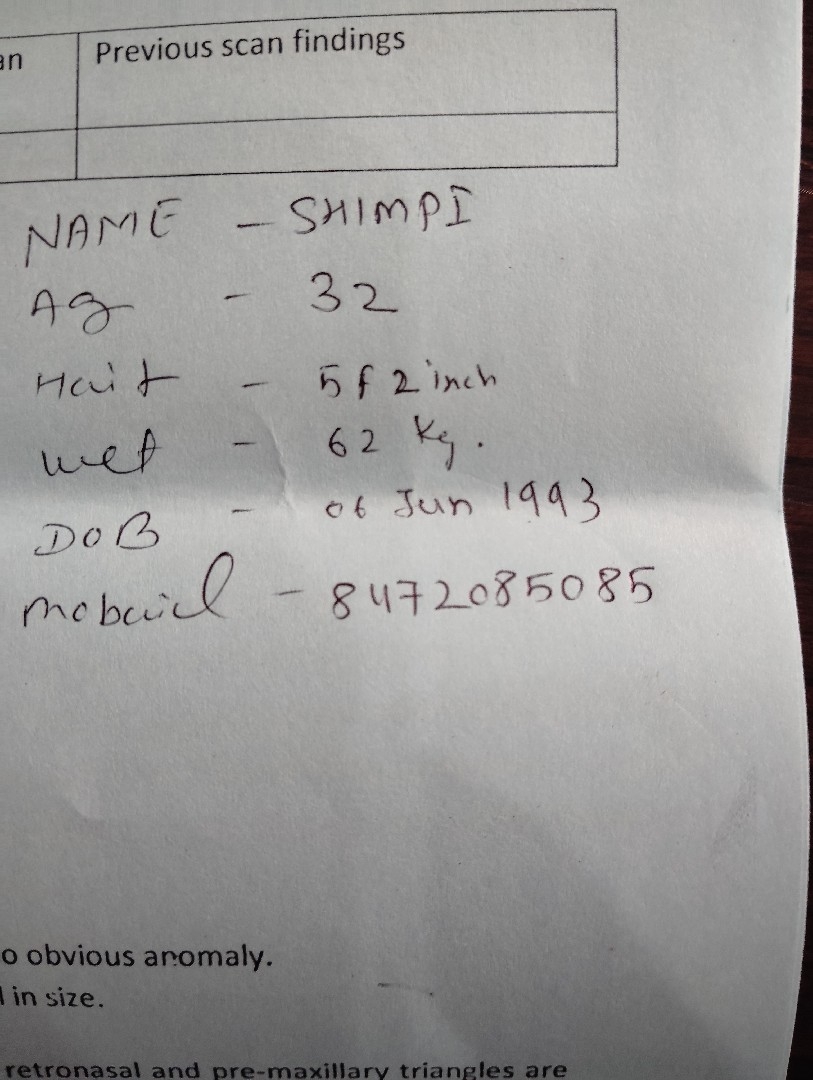 an Previous scan findings
NAME - SHIMPI
Ag - 32
Hait - 5 f 2 inch
wet - 62 Kg.
DOB - 06 Jun 1993
mobaiel - 8472085085
o obvious anomaly.
l in size.
retronasal and pre-maxillary triangles are